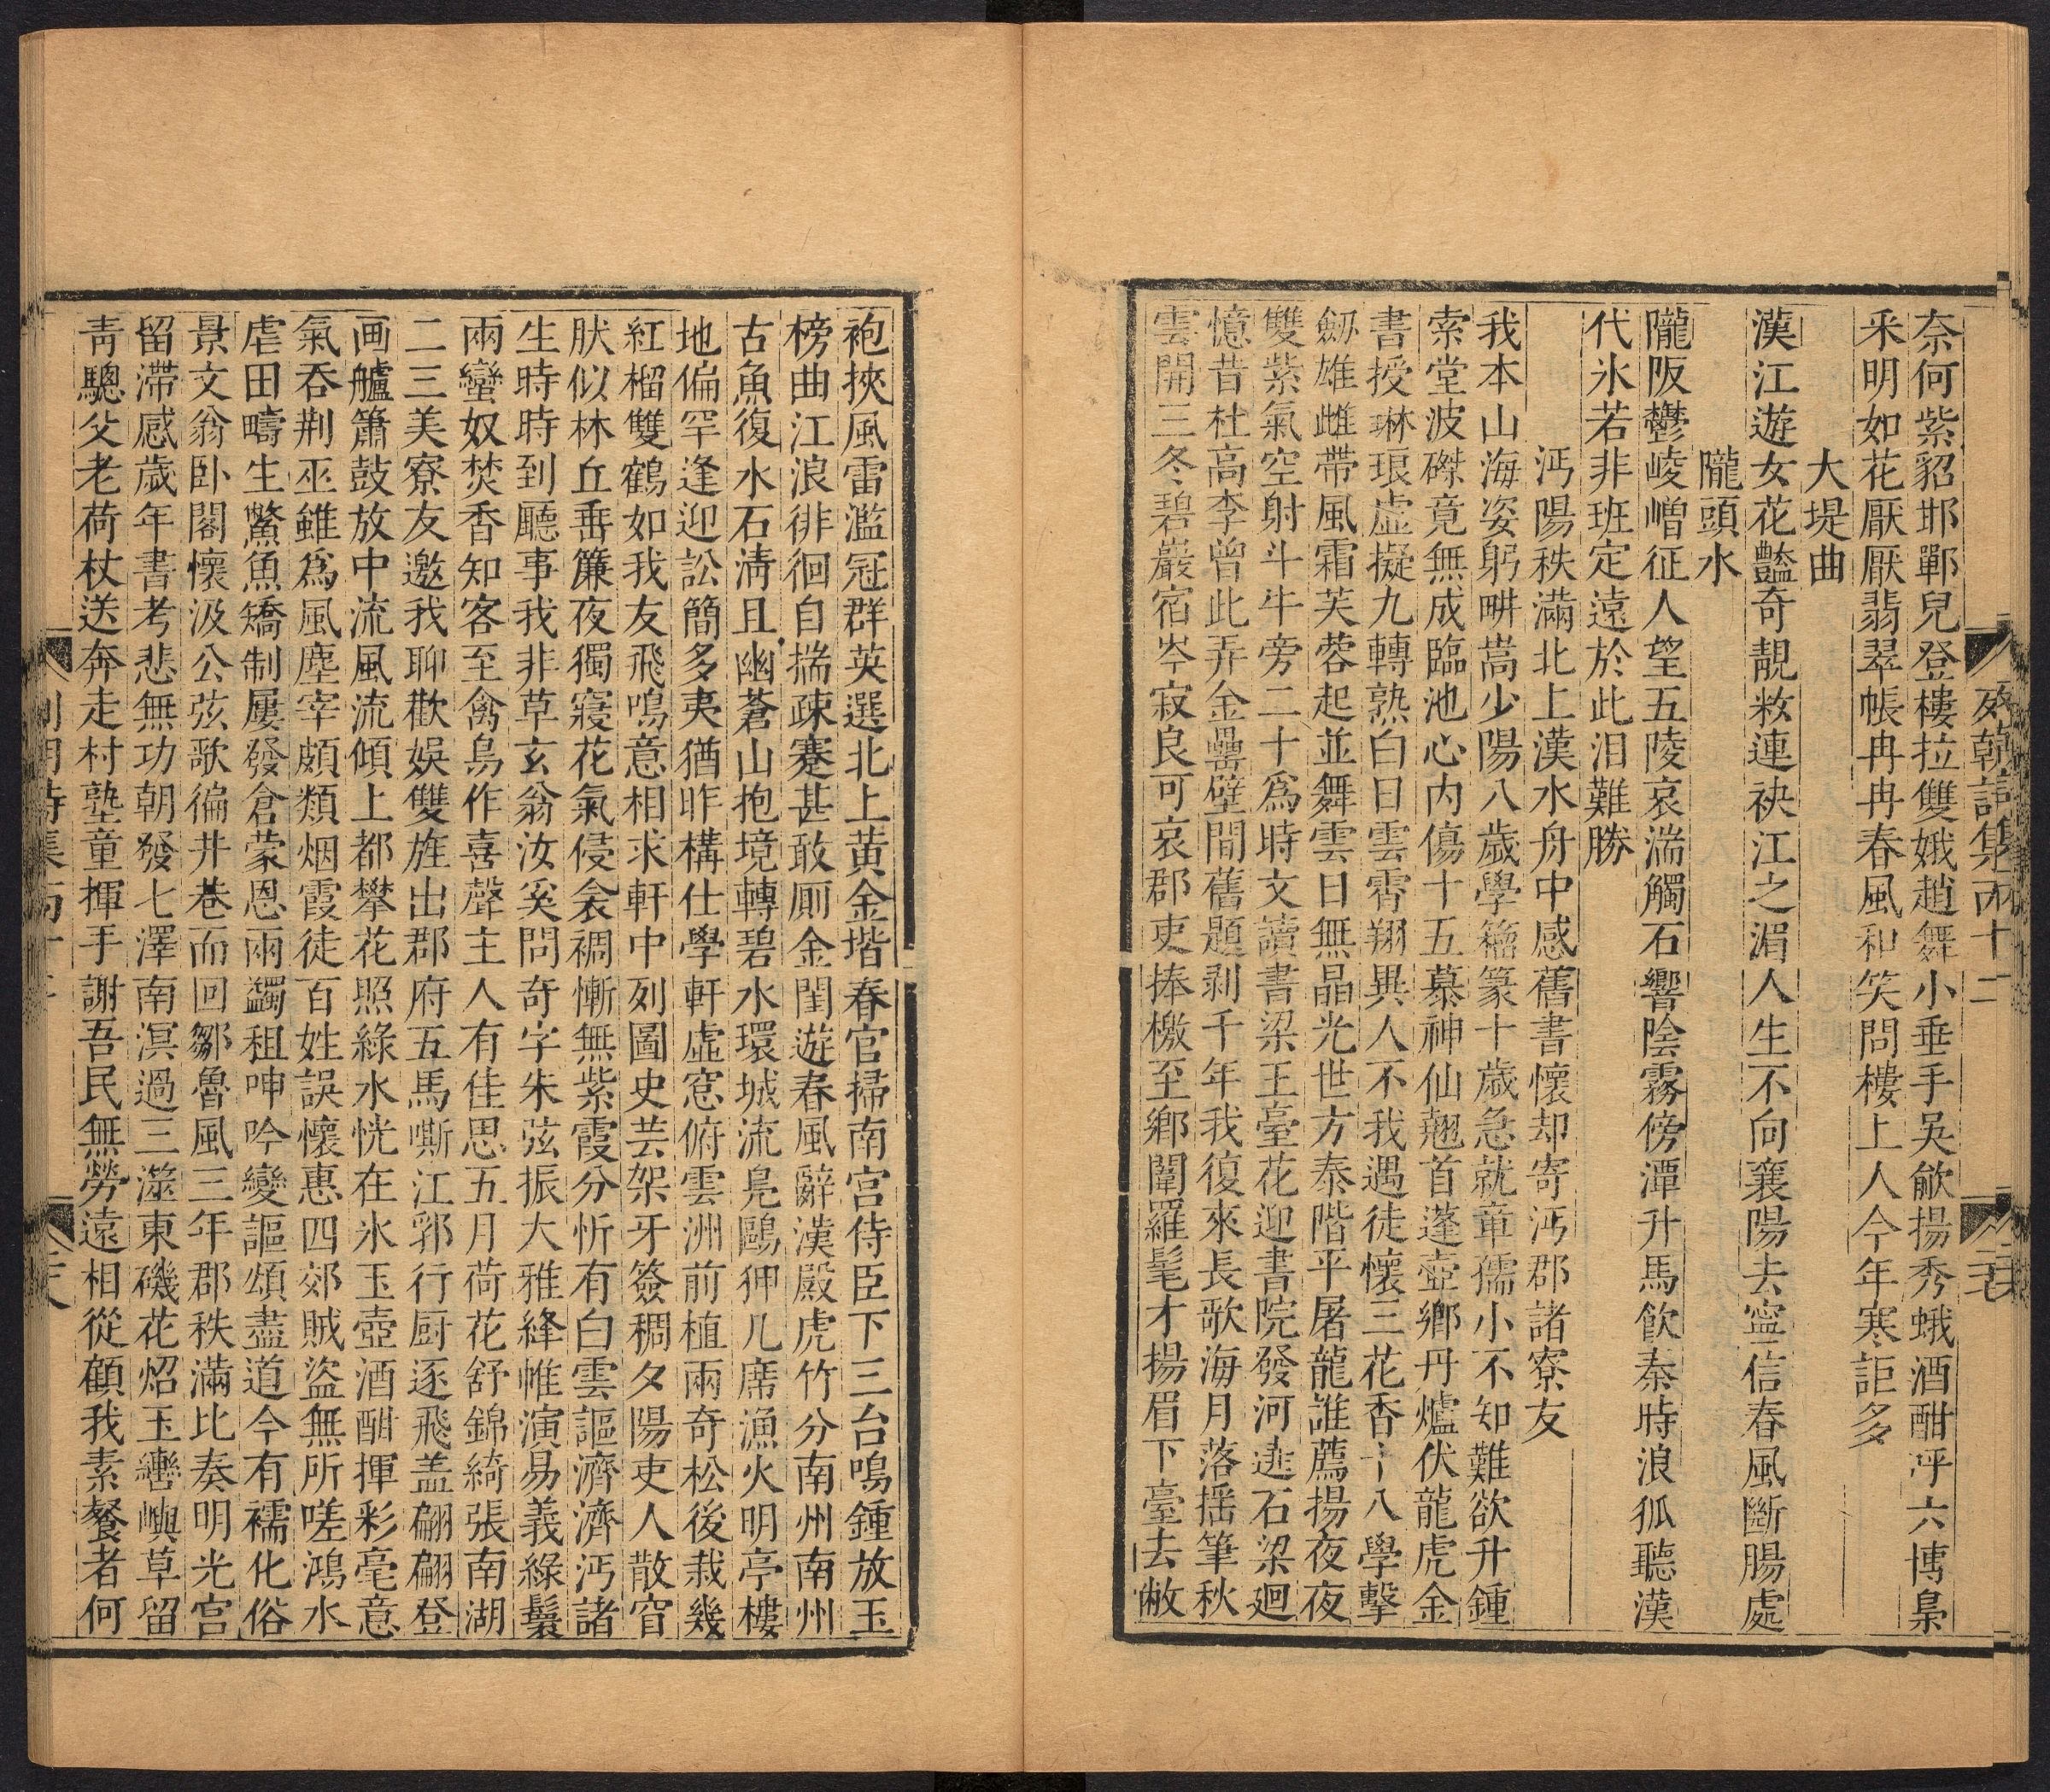 奈何紫貂邯鄲兒登樓拉雙娥趙舞小垂手吳歈揚秀蛾酒酣呼六博梟
采明如花厭厭翡翠帳冉冉春風和笑問樓上人今年寒詎多
大堤曲
漢江遊女花豔奇靚粧連袂江之湄人生不向襄陽去寧信春風斷腸處
隴頭水
隴阪鬱崚嶒征人望五陵哀湍觸石響陰霧傍潭升馬飲秦時浪狐聽漢
代氷若非班定遠於此泪難勝
沔陽秩滿北上漢水舟中感舊書懷却寄沔郡諸寮友
我本山海姿躬畊嵩少陽八歲學籀篆十歲急就章孺小不知難欲升鍾
索堂波磔竟無成臨池心内傷十五慕神仙翹首蓬壺鄉丹爐伏龍虎金
書授琳琅虛擬九轉熟白日雲霄翔異人不我遇徒懷三花香十八學擊
劒雄雌帶風霜芙蓉起並舞雲日無晶光世方泰階平屠龍誰薦揚夜夜
雙紫氣空射斗牛旁二十爲時文讀書梁王臺花迎書院發河遶石梁廻
憶昔杜高李曾此弄金罍壁間舊題剥千年我復來長歌海月落揺筆秋
雲開三冬碧巖宿岑寂良可哀郡吏捧檄至鄉闈羅髦才揚眉下臺去敝
袍挾風雷濫冠群英選北上黄金堦春官掃南宫侍臣下三台鳴鍾放玉
榜曲江浪徘徊自揣疎蹇甚敢厠金閨遊春風辭漢殿虎竹分南州南州
古魚復水石清且幽蒼山抱境轉碧水環城流鳧鷗狎几席漁火明亭樓
地偏罕逢迎訟簡多夷猶昨構仕學軒虛窓俯雲洲前植兩奇松後栽幾
紅榴雙鶴如我友飛鳴意相求軒中列圖史芸架牙籤稠夕陽吏人散窅
肰似林丘垂簾夜獨寢花氣侵衾裯慚無紫霞分忻有白雲謳濟濟沔諸
生時時到廳事我非草玄翁汝奚問奇字朱弦振大雅絳帷演易義綠鬟
兩蠻奴焚香知客至禽鳥作喜聲主人有佳思五月荷花舒錦綺張南湖
二三美寮友邀我聊歡娛雙旌出郡府五馬嘶江郛行厨逐飛盖翩翩登
画艫簫鼓放中流風流傾上都攀花照綠水恍在氷玉壺酒酣揮彩毫意
氣呑荆巫雖爲風塵宰頗類烟霞徒百姓誤懷惠四郊賊盗無所嗟鴻水
虐田疇生鱉魚矯制屢發倉蒙恩兩蠲租呻吟變謳頌盡道今有襦化俗
景文翁卧閣懷汲公弦歌徧井巷而回鄒魯風三年郡秩滿比奏明光宫
留滯感歲年書考悲無功朝發七澤南溟過三澨東磯花炤玉轡嶼草留
青驄父老荷杖送奔走村塾童揮手謝吾民無勞遠相從顧我素餐者何